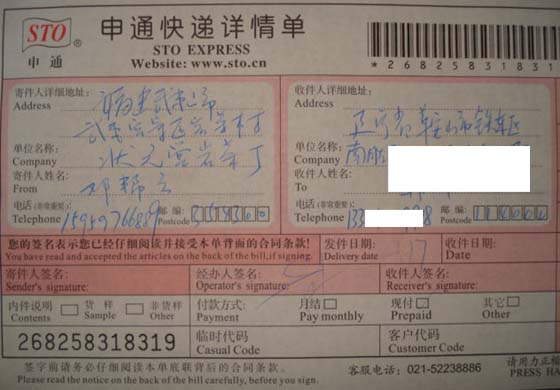 STO ®
申通
申通快递详情单
STO EXPRESS
Website: www.sto.cn
*26825831831
寄件人详细地址:
Address
福建武夷山市
武夷宫景区岩茶村
单位名称:
Company
状元宫岩茶厂
寄件人姓名:
From
邓
电话(非常重要)
Telephone
15959766889
邮编:
Postcode
354300
收件人详细地址:
Address
辽宁省鞍山市铁东区
单位名称:
Company
南
收件人姓名:
To
电话(非常重要)
Telephone
133
邮编:
Postcode
您的签名表示您已经仔细阅读并接受本单背面的合同条款!
You have read and accepted the articles on the back of the bill,if signing.
发件日期:
Delivery date
17
收件日期:
Date
寄件人签名:
Sender's signature:
经办人签名:
Operator's signature:
收件人签名:
Receiver's signature:
内件说明
Contents
货样
Sample
非货样
Other
付款方式:
Payment:
月结
Pay monthly
现付
Prepaid
其它
Other
268258318319
临时代码
Casual Code
客户代码
Customer Code
签字前请务必仔细阅读本单底联背后的合同条款。
Please read the notice on the back of the bill carefully, before you sign.
客服电话: 021-52238886
请用力正楷
PRESS H